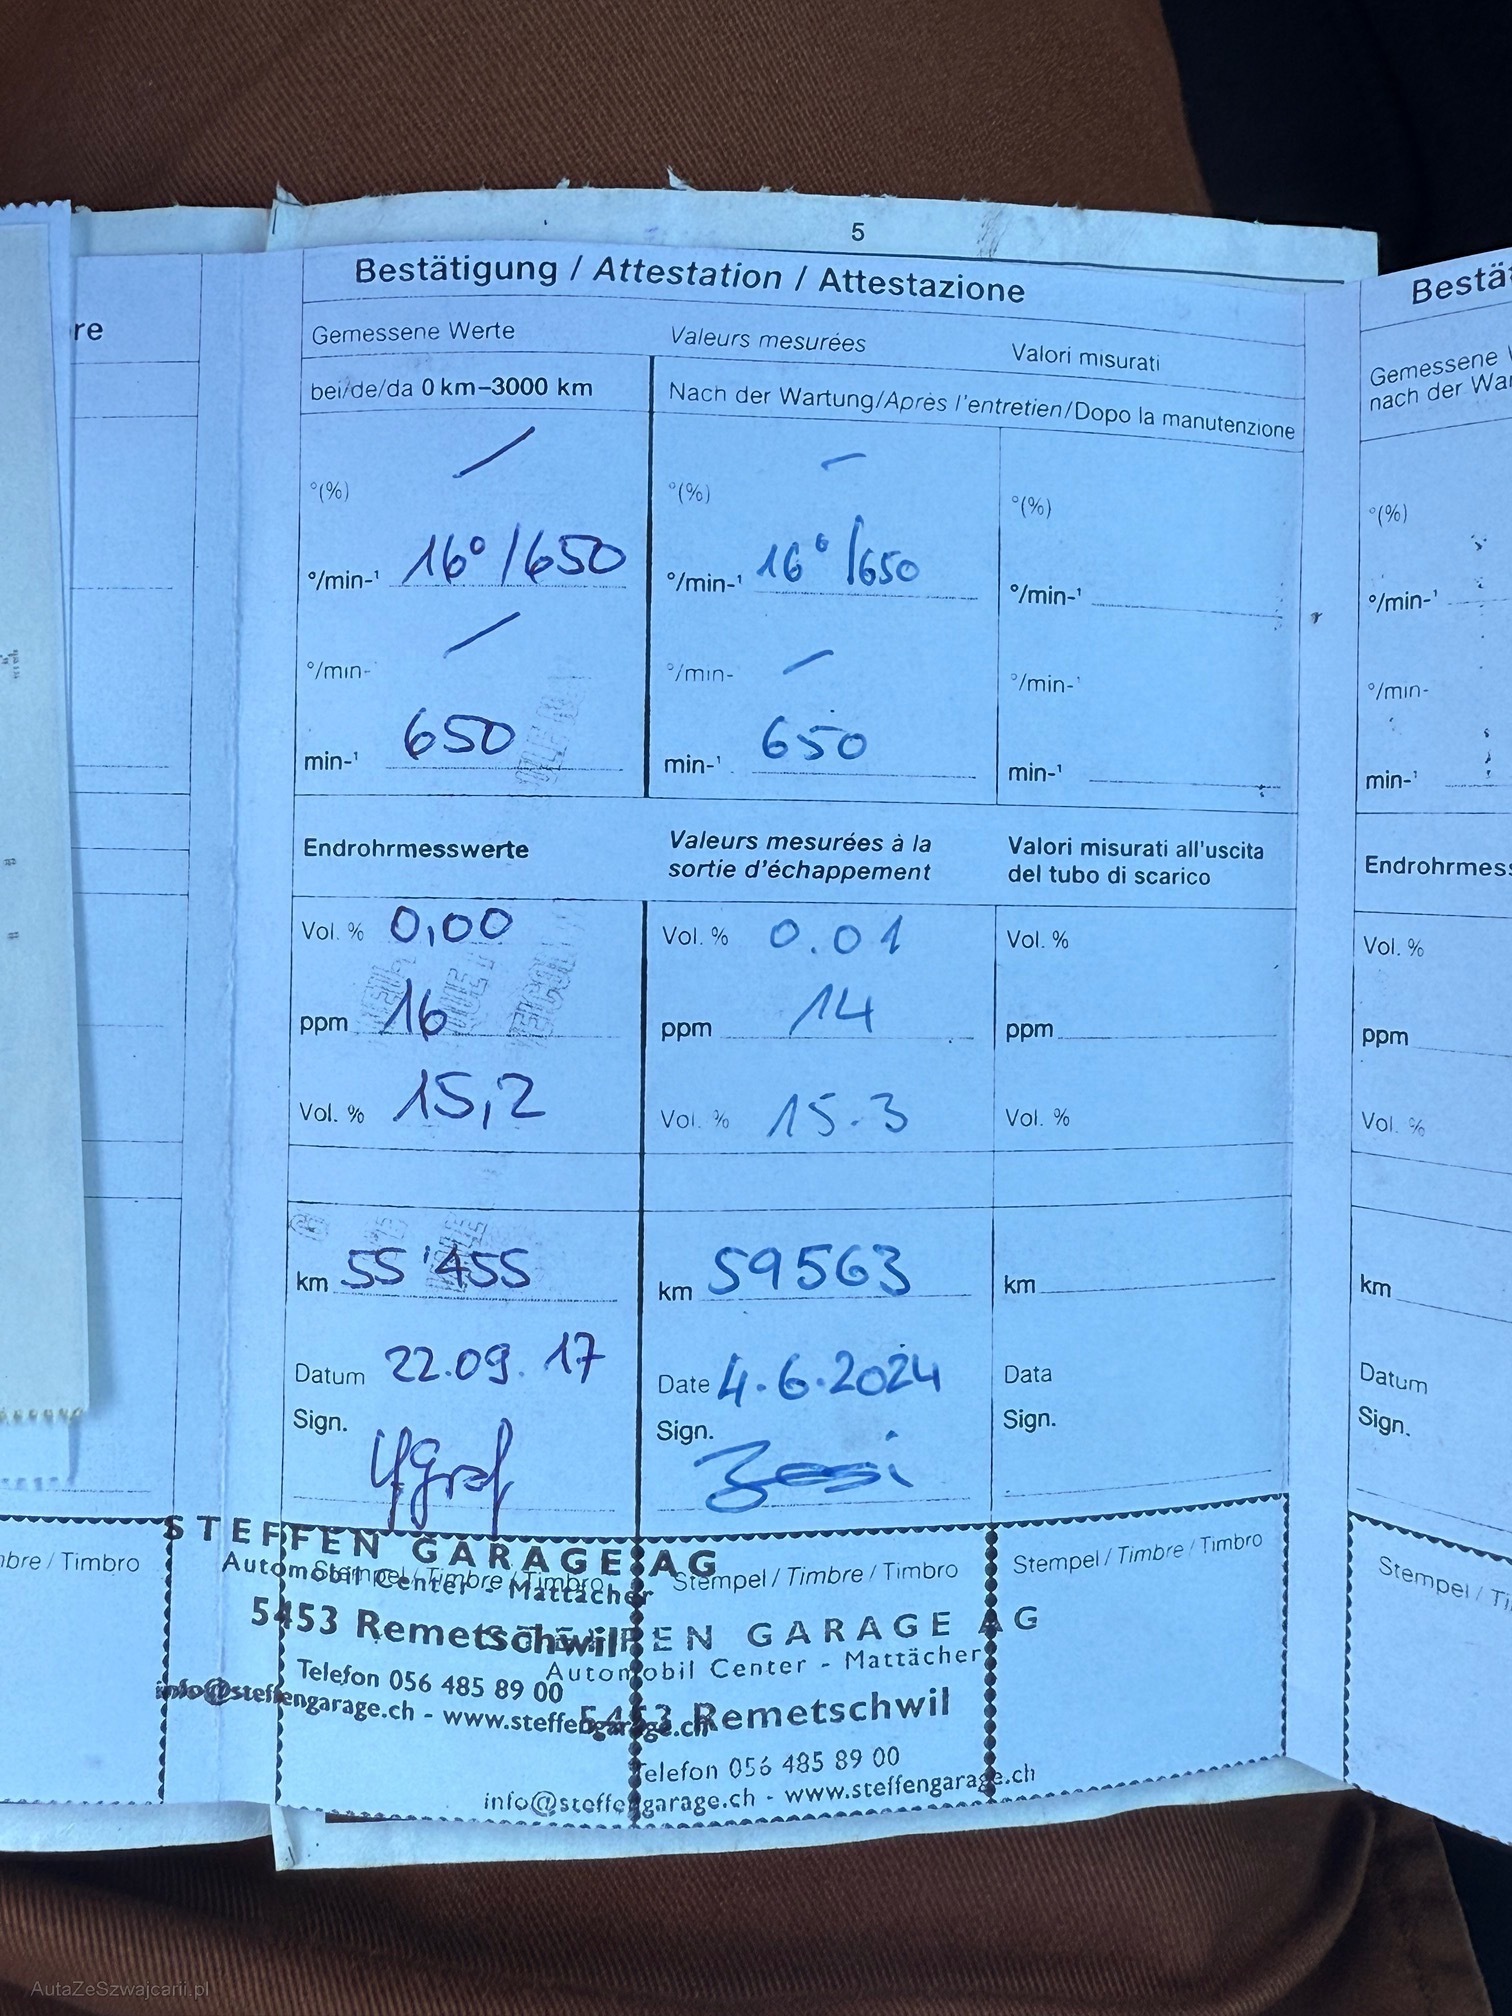 5
Bestätigung / Attestation / Attestazione
Gemessene Werte Valeurs mesurées Valori misurati
bei/de/da 0 km–3000 km Nach der Wartung/Après l'entretien/Dopo la manutenzione
°(%) / °(%) – °(%)
°/min-¹ 16°/650 °/min-¹ 16°/650 °/min-¹
°/min- / °/min- – °/min-¹
min-¹ 650 min-¹ 650 min-¹
Endrohrmesswerte Valeurs mesurées à la sortie d'échappement Valori misurati all'uscita del tubo di scarico
Vol. % 0,00 Vol. % 0.01 Vol. %
ppm 16 ppm 14 ppm
Vol. % 15,2 Vol. % 15.3 Vol. %
km 55'455 km 59563 km
Datum 22.09.17 Date 4.6.2024 Data
Sign. Sign. Sign.
Stempel / Timbre / Timbro Stempel / Timbre / Timbro Stempel / Timbre / Timbro
STEFFEN GARAGE AG
Automobil Center - Mattächer
5453 Remetschwil
Telefon 056 485 89 00
info@steffengarage.ch - www.steffengarage.ch
STEFFEN GARAGE AG
Automobil Center - Mattächer
5453 Remetschwil
Telefon 056 485 89 00
info@steffengarage.ch - www.steffengarage.ch
re
mbre / Timbro
Bestä
Gemessene
nach der War
°(%)
°/min-¹
°/min-
min-¹
Endrohrmess
Vol. %
ppm
Vol. %
km
Datum
Sign.
Stempel / Ti
AutaZeSzwajcarii.pl